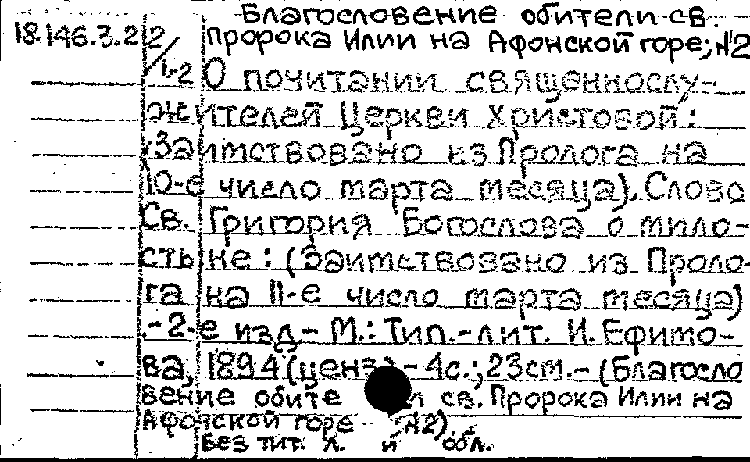 Благословение обители св.
18.146.3.2 2/1-2 пророка Илии на Афонской горе; №2
О почитании священнослу-
жителей Церкви Христовой:
(Заимствовано из Пролога на
10-е число марта месяца). Слово
Св. Григория Богослова о мило-
стыне: (Заимствовано из Проло-
га на 11-е число марта месяца)
.-2-е изд.- М.: Тип.-лит. И. Ефимо-
ва, 1894 (ценз).- 4с.; 23см.- (Благосло
вение обите и св. Пророка Илии на
Афонской горе №2).
Без тит. л. и обл.